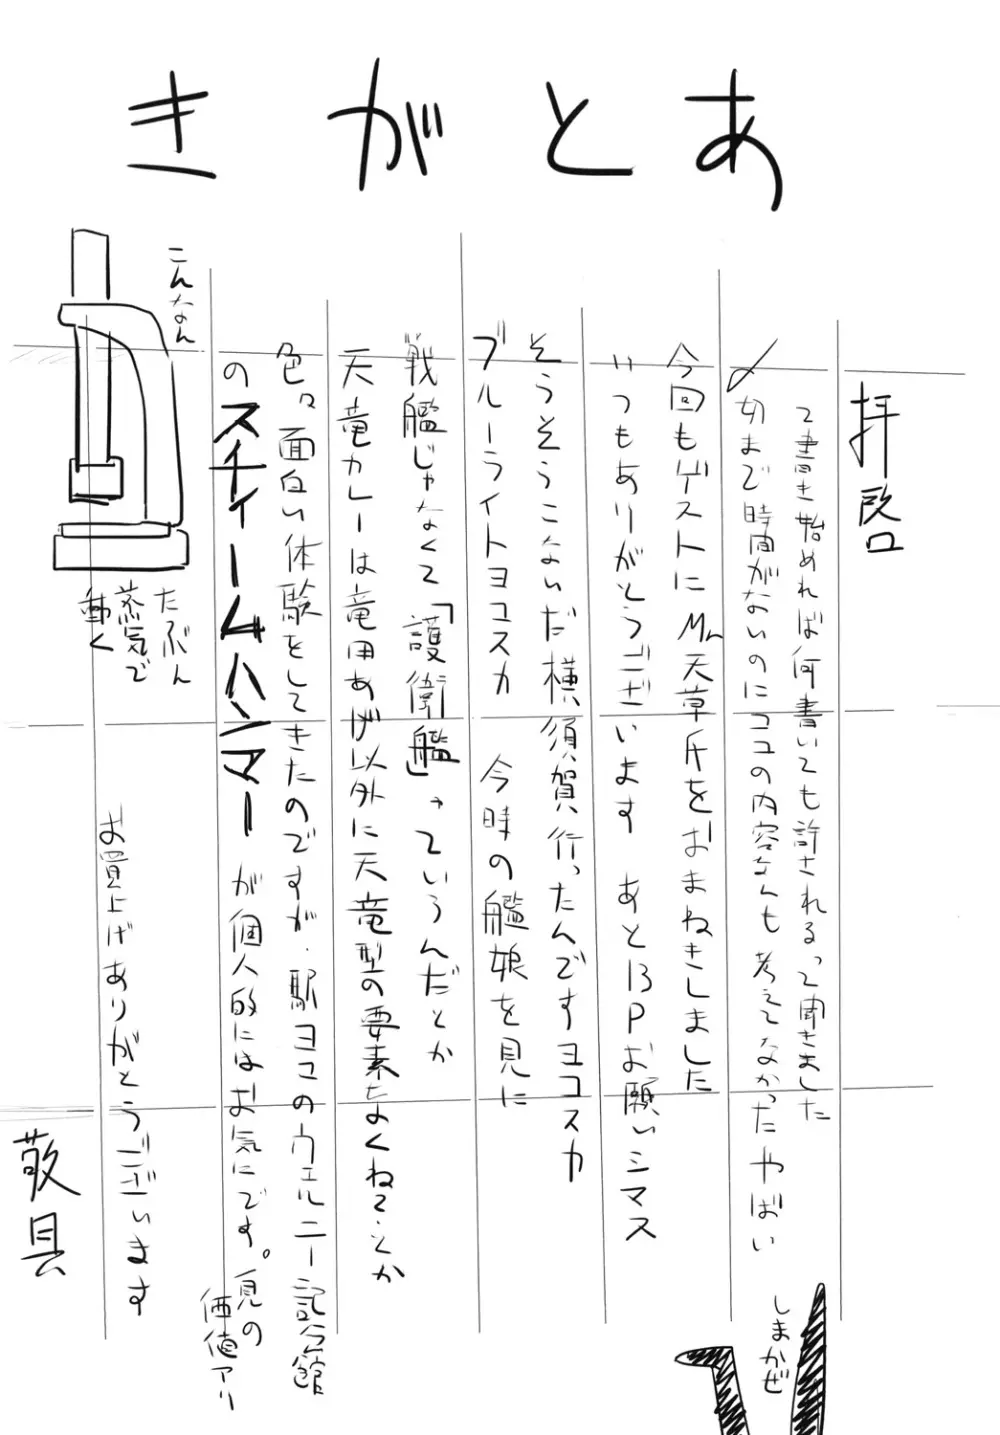 あとがき
拝啓
って書き始めれば何書いても許されるって聞きました
〆切まで時間がないのにココの内容なんも考えてなかったやばい
今回もゲストにMr.天草氏をおまねきしました
いつもありがとうございます あと13Pお願いシマス
そうそうこないだ横須賀行ったんですヨコスカ
ブルーライトヨコスカ 今時の艦娘を見に
戦艦じゃなくて「護衛艦」っていうんだとか
天竜カレーは竜田あげ以外に天竜型の要素もよくねぇとか
色々面白い体験をしてきたのですが、駅ヨコのヴェルニー記念館
のスチームハンマーが個人的にはお気にです。見の
価値アリ
こんなん
たぶん
蒸気で
動く
お買上げありがとうございます
敬具
しまかぜ